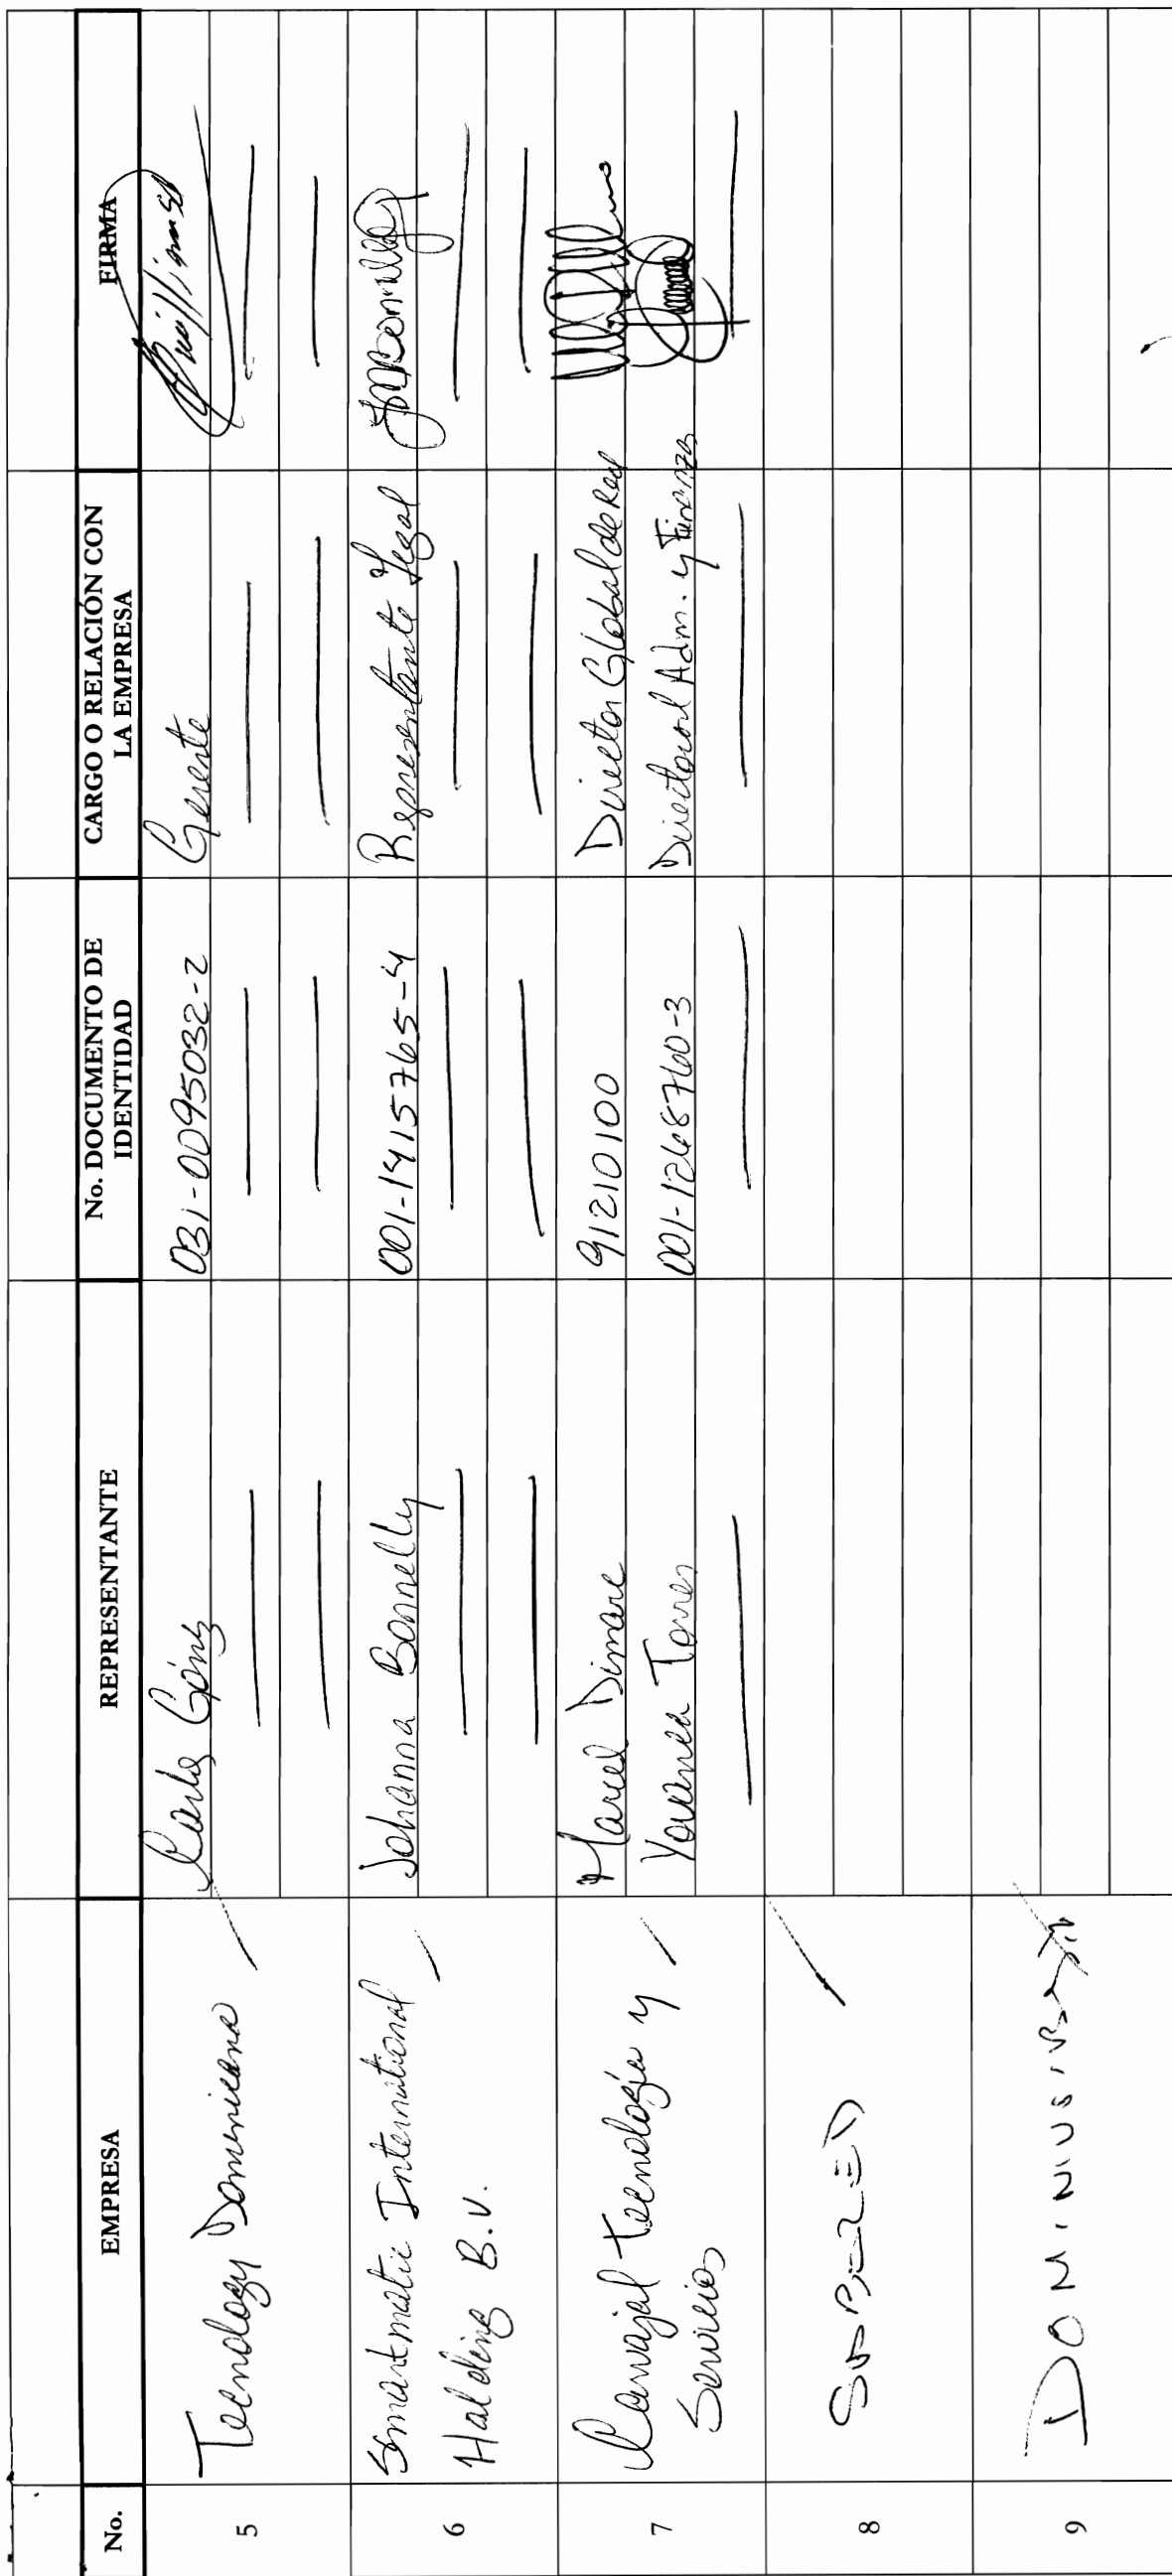 No. EMPRESA REPRESENTANTE No. DOCUMENTO DE IDENTIDAD CARGO O RELACIÓN CON LA EMPRESA FIRMA
5 Tecnology Dominicana Carlos 031-0095032-2 Gerente
6 Smartmatic International Johanna Bonnelly 001-1415765-4 Representante Legal
Holding B.V.
7 Carvajal Tecnología y Marcel Dimare 9121010 0 Director Global de Red
Servicios Torres 001-1268760-3 Adm. y Finanzas
8
9 DOMINIUS